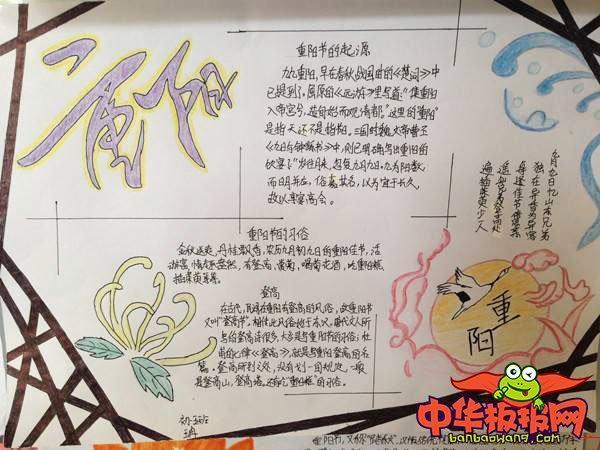 重阳
重阳节的起源
九九重阳，早在春秋战国时的《楚词》中
已提到了，屈原的《远游》里写道："集重阳
入帝宫兮，造旬始而观清都"。这里的"重阳"
是指天还不是指节日。三国时魏文帝曹丕
《九日与钟繇书》中，则已明确写出重阳的
饮宴了"岁往月来，忽复九月九日，九为阳数，
而日月并应，俗嘉其名，以为宜于长久，
故以享宴高会。
九月九日忆山东兄弟
独在异乡为异客
每逢佳节倍思亲
遥知兄弟登高处
遍插茱萸少一人
重阳节的习俗
金秋送爽，丹桂飘香，农历九月初九日的重阳佳节，活
动丰富，情趣盎然，有登高、赏菊、喝菊花酒、吃重阳糕、
插茱萸等等。
登高
在古代，民间在重阳有登高的风俗，故重阳节
又叫"登高节"。相传此风俗始于东汉。唐代文人所
写的登高诗很多，大多是写重阳节的习俗；杜
甫的七律《登高》，就是写重阳登高的名
篇。登高所到之处，没有划一的规定，一般
是登高山、登高塔。还有吃"重阳糕"的习俗。
重阳
中华板报网
banbaowang.com